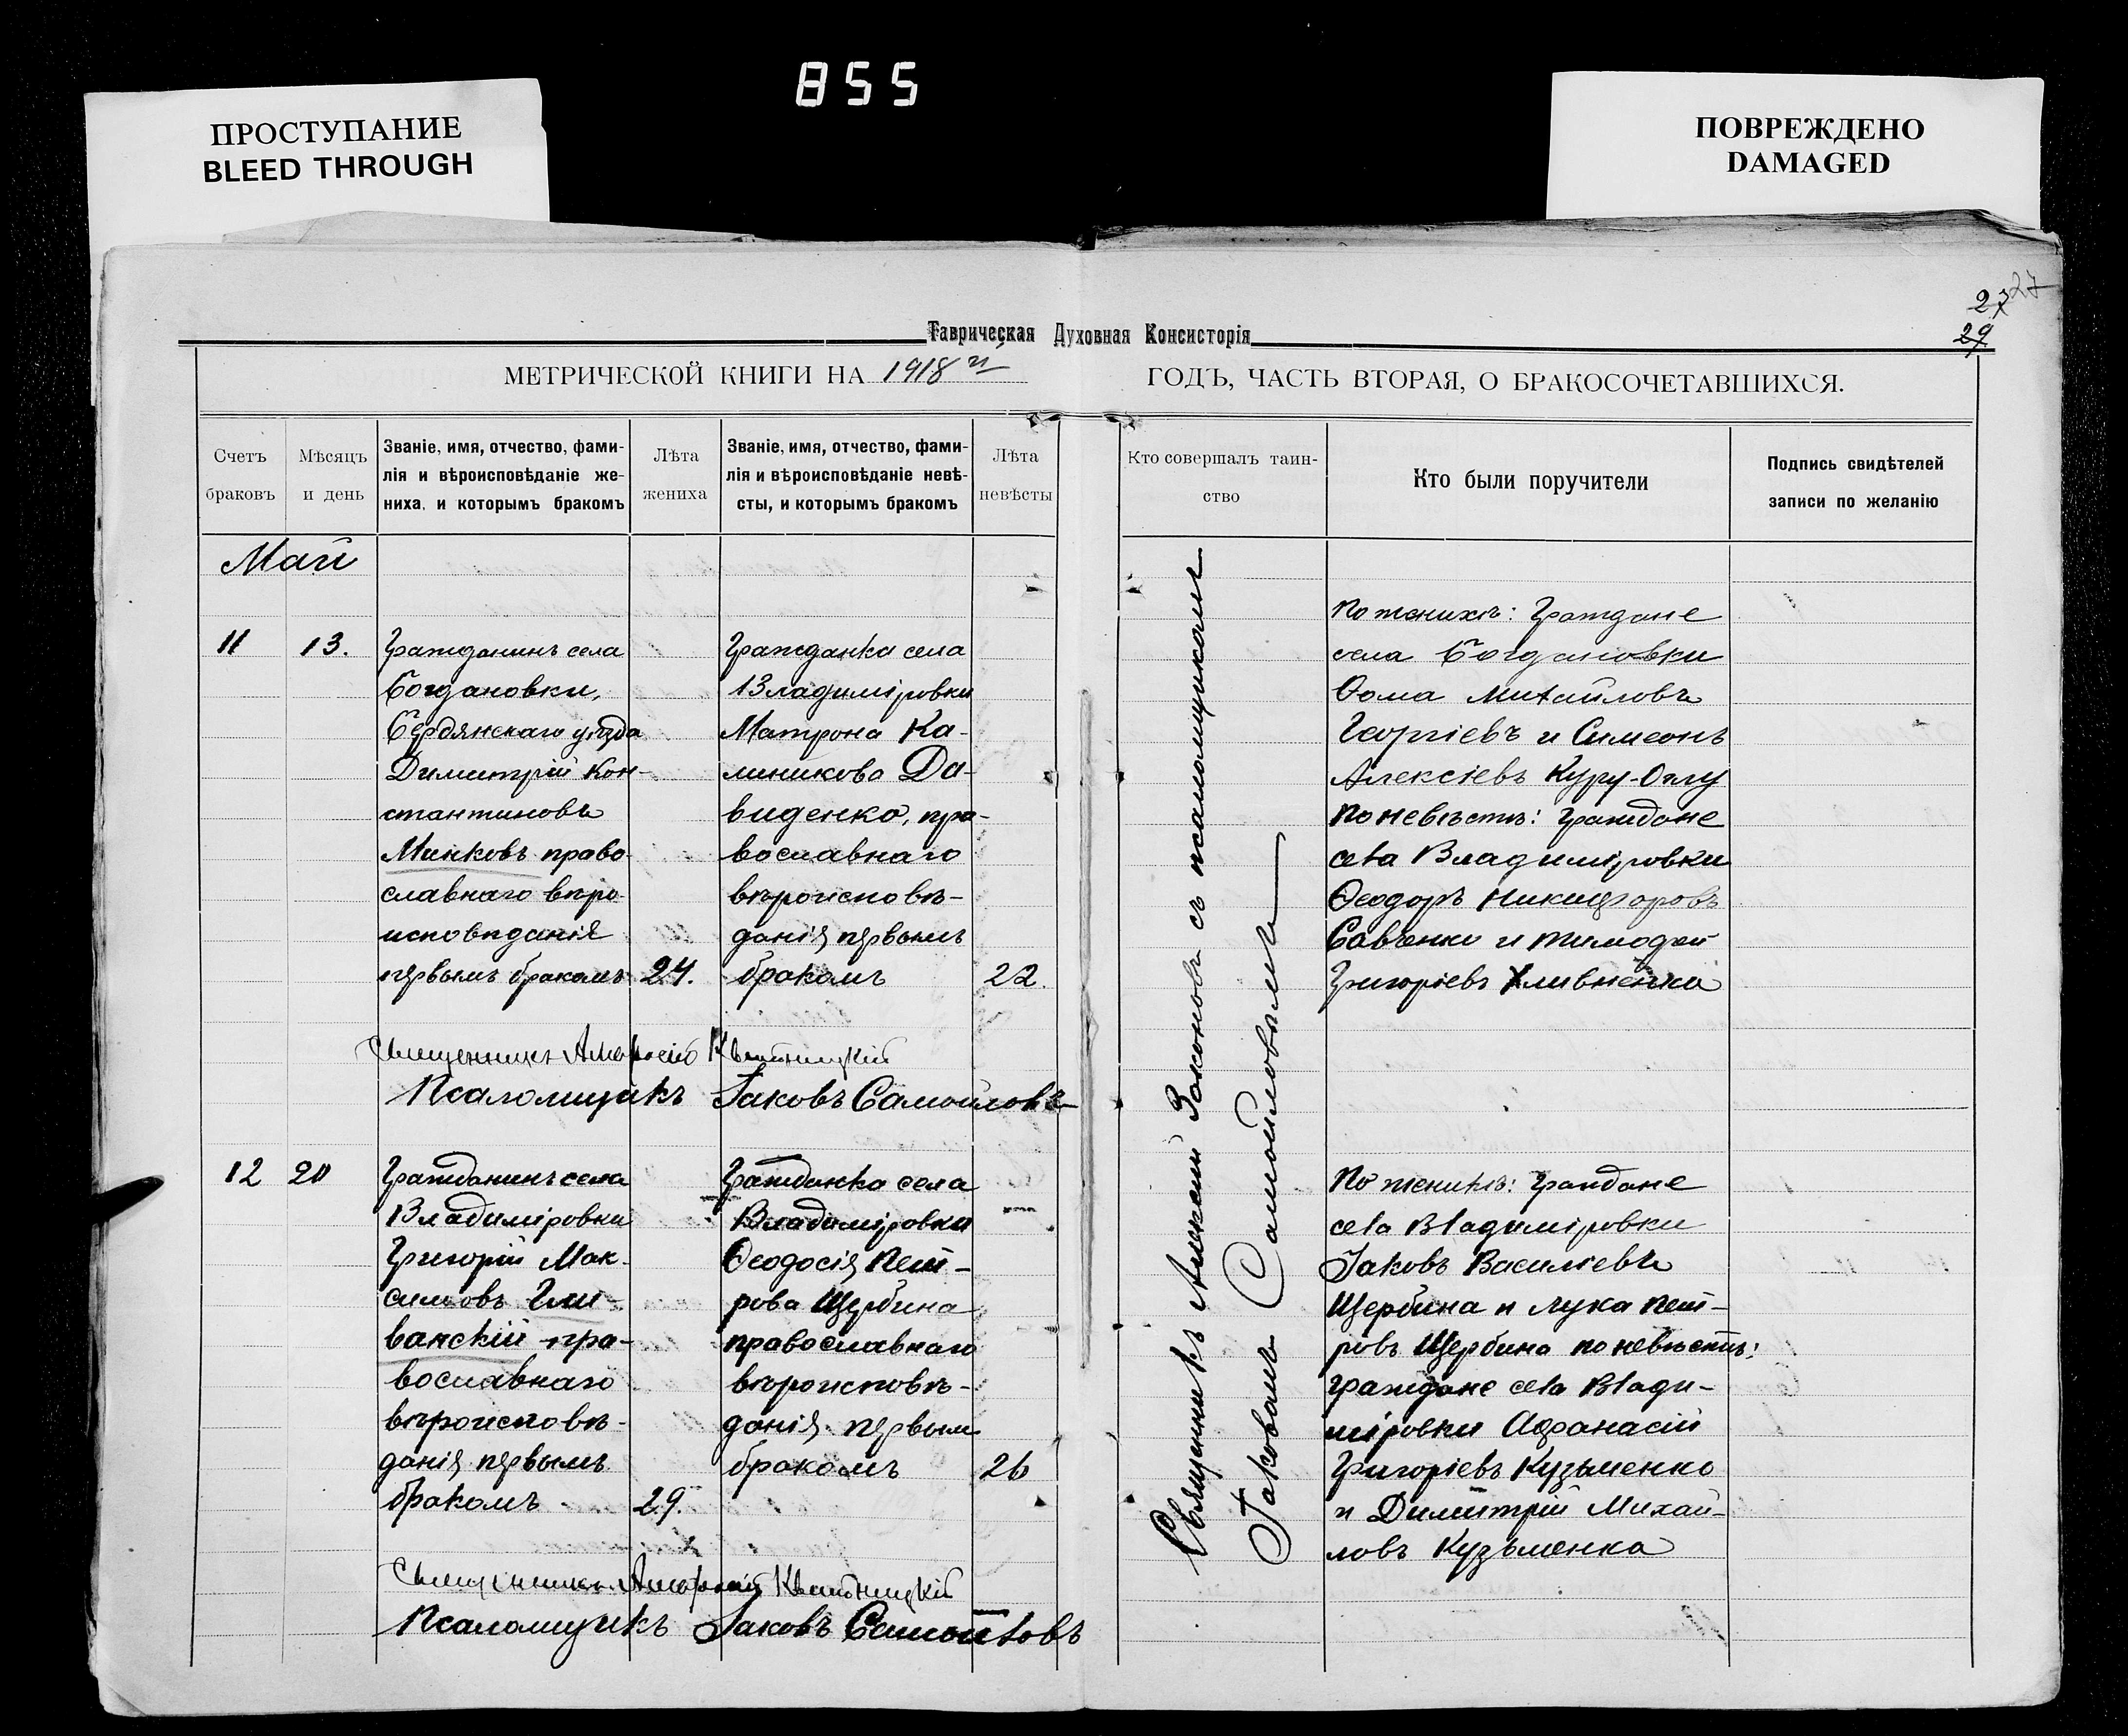 855
ПРОСТУПАНИЕ
BLEED THROUGH
ПОВРЕЖДЕНО
DAMAGED
27
27
29
Таврическая Духовная Консисторія
МЕТРИЧЕСКОЙ КНИГИ НА 1918 й ГОДЪ, ЧАСТЬ ВТОРАЯ, О БРАКОСОЧЕТАВШИХСЯ.
Счетъ
браковъ
Мѣсяцъ
и день
Званіе, имя, отчество, фами-
лія и вѣроисповѣданіе же-
ниха, и которымъ бракомъ
Лѣта
жениха
Званіе, имя, отчество, фами-
лія и вѣроисповѣданіе невѣ-
сты, и которымъ бракомъ
Лѣта
невѣсты
Кто совершалъ таин-
ство
Кто были поручители
Подпись свидѣтелей
записи по желанію
Май
11
13.
Гражданинъ села
Богдановки,
Бердянскаго уѣзда
Димитрій Кон-
стантиновъ
Минковъ право-
славнаго вѣро-
исповѣданія
первымъ бракомъ
24.
Гражданка села
Владиміровки
Матрона Ка-
линикова Да-
виденко, пра-
вославнаго
вѣроисповѣ-
данія первымъ
бракомъ
22.
По женихѣ: Граждане
села Богдановки
Ѳома Михайловъ
Георгіевъ и Симеонъ
Алексіевъ Куру-Оглу
По невѣстѣ: Граждане
села Владиміровки
Ѳеодоръ Никифоровъ
Савченко и Тимофей
Григоріевъ Хливненко
Священникъ Амвросій Квитницкій
Псаломщикъ Іаковъ Самойловъ
12
20
Гражданинъ села
Владиміровки
Григорій Мак-
симовъ Гли-
ванскій пра-
вославнаго
вѣроисповѣ-
данія первымъ
бракомъ
29.
Гражданка села
Владиміровки
Ѳеодосія Пет-
рова Щербина
православнаго
вѣроисповѣ-
данія первым
бракомъ
26
По женихѣ: Граждане
села Владиміровки
Іаковъ Василіевъ
Щербина и Лука Пет-
ровъ Щербина по невѣстѣ:
Граждане села Влади-
міровки Афанасій
Григоріевъ Кузьменко
и Димитрій Михай-
ловъ Кузьменко
Священникъ Амвросій Квитницкій
Псаломщикъ Іаковъ Самойловъ
Священникъ Алексій Законовъ съ псаломщикомъ
Іаковомъ Самойловымъ